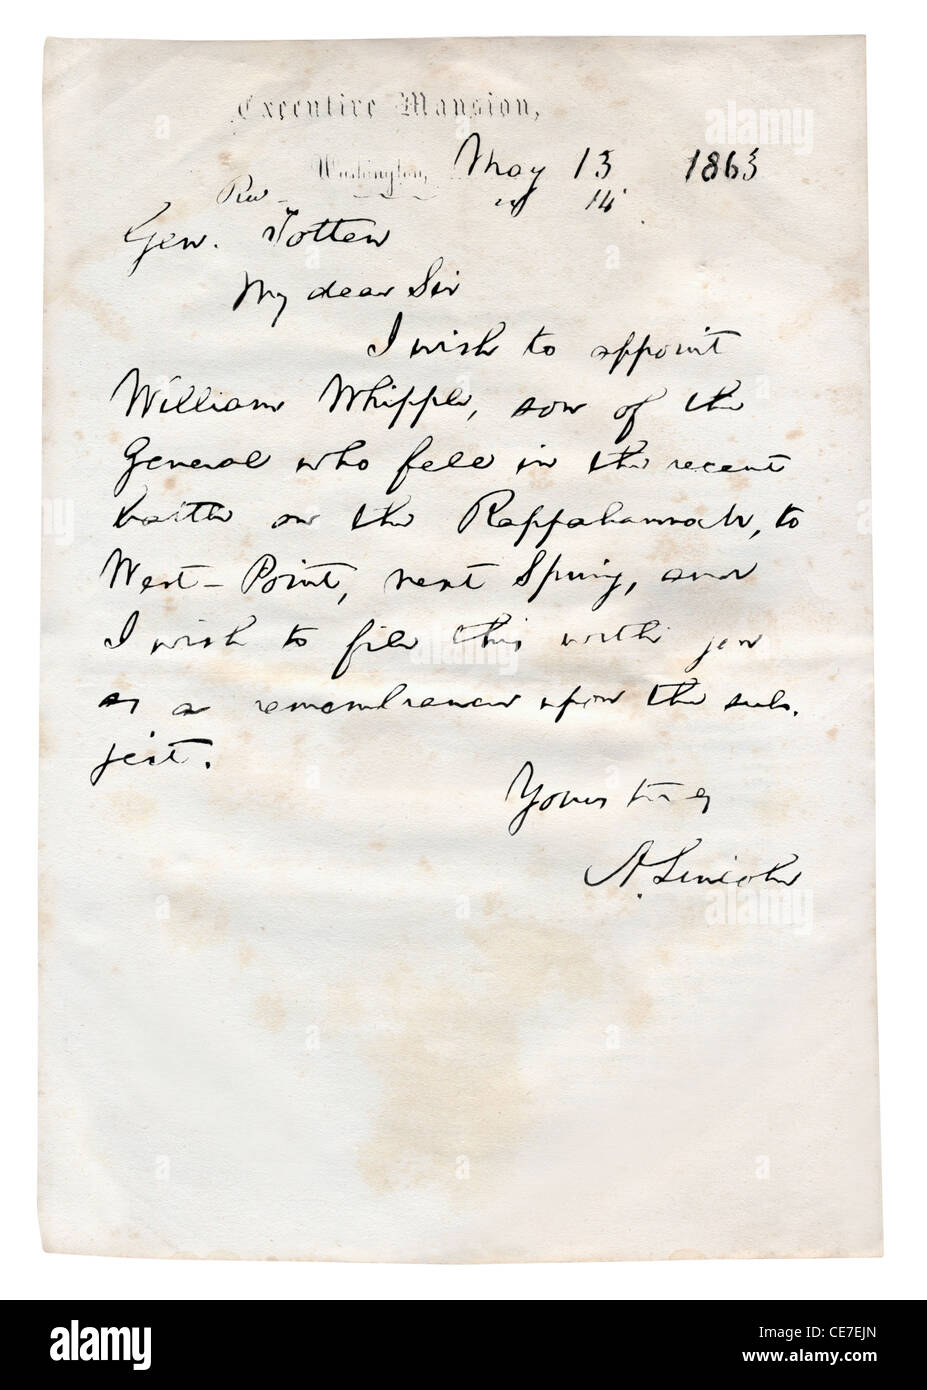 Executive Mansion,
Washington, May 13 1863
Rec 14
Gen. Totten
My dear Sir
I wish to appoint
William Whipple, son of the
General who fell in the recent
battle on the Rappahannock, to
West-Point, next Spring, and
I wish to file this with you
as a remembrancer upon the sub-
ject.
Yours truly
A. Lincoln
alamy
alamy
alamy
alamy
Image ID: CE7EJN
www.alamy.com